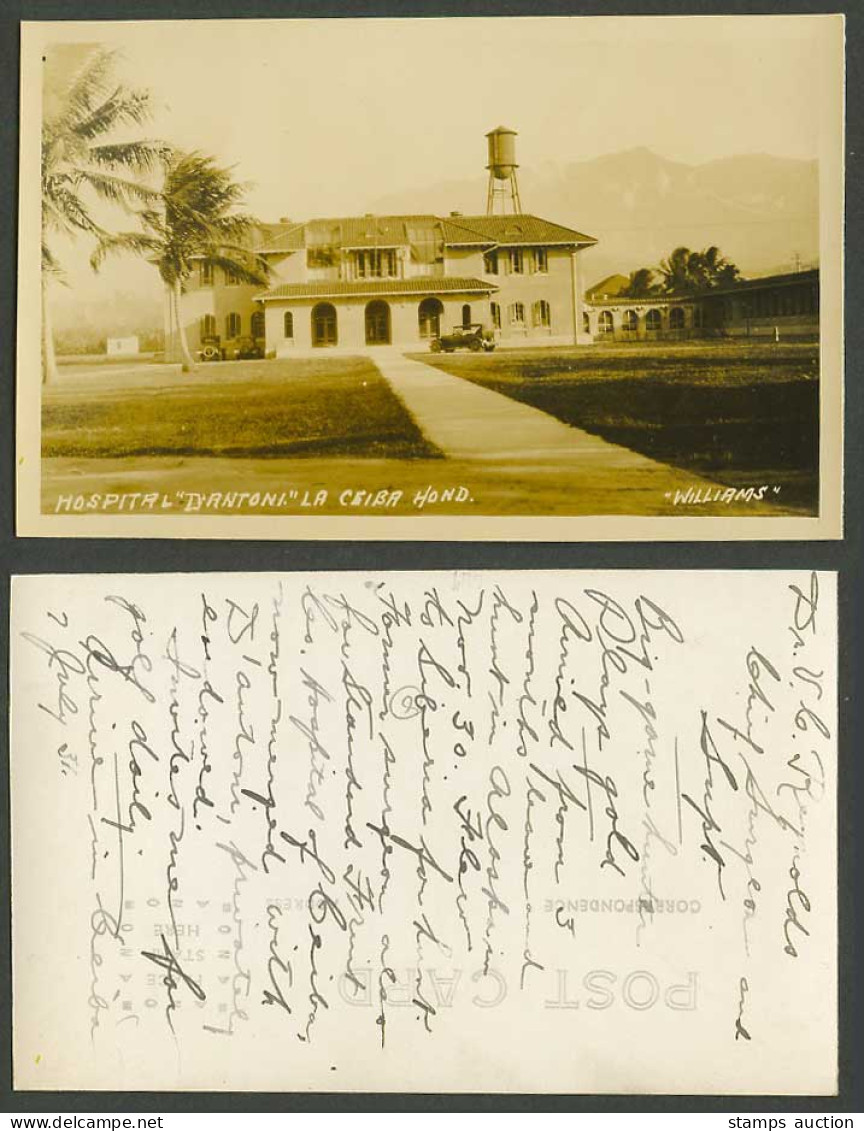 HOSPITAL "D'ANTONI." LA CEIBA HOND.
"WILLIAMS"
Dr. V. C. Reynolds
Chief Surgeon and
Supt.
Big-game hunter
Plays golf
Arrived from 3
months leave and
hunt in Alaska in
Nov. 30. Flew
to Siberia for hunt.
Former surgeon also
for Standard Fruit
Co. Hospital of Ceiba,
now merged with
D'antoni, privately
endowed.
Invites me for
golf daily.
Arrive in Ceiba
7 July 31.
POST CARD
CORRESPONDENCE
ADDRESS
STAMP
HERE
stamps auction